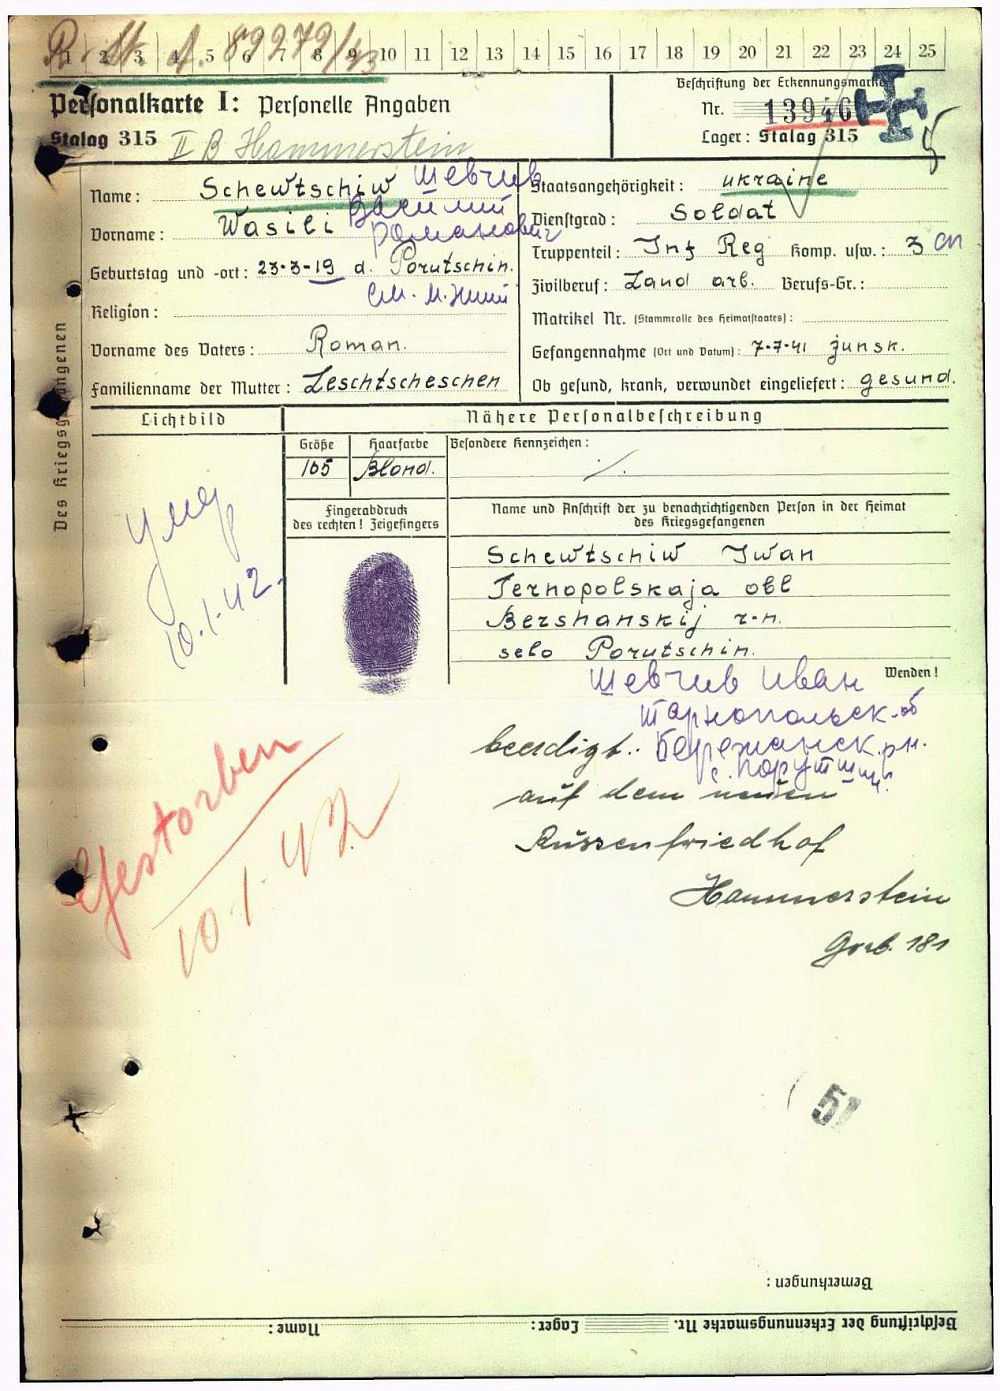 1 2 3 4 5 6 7 8 9 10 11 12 13 14 15 16 17 18 19 20 21 22 23 24 25
89279/43
Personalkarte I: Personelle Angaben
Stalag 315 II B Hammerstein
Beschriftung der Erkennungsmarke
Nr. 13946
Lager: Stalag 315
5
Des Kriegsgefangenen
Name: Schewtschiw Шевчив
Vorname: Wasili Василий
Романович
Geburtstag und -ort: 23-3-19 d. Porutschin.
Religion:
Vorname des Vaters: Roman.
Familienname der Mutter: Leschtscheschen
Staatsangehörigkeit: ukraine
Dienstgrad: Soldat
Truppenteil: Inf Reg Komp. usw.: 3 сп
Zivilberuf: Land arb. Berufs-Gr.:
Matrikel Nr. (Stammrolle des Heimatstaates):
Gefangennahme (Ort und Datum): 7-7-41 Junsk.
Ob gesund, krank, verwundet eingeliefert: gesund.
Lichtbild
Nähere Personalbeschreibung
Größe Haarfarbe Besondere Kennzeichen:
165 Blond. ./.
Fingerabdruck
des rechten! Zeigefingers
Name und Anschrift der zu benachrichtigenden Person in der Heimat
des Kriegsgefangenen
Schewtschiw Iwan
Ternopolskaja obl
Bershanskij r-n.
selo Porutschin.
Wenden!
умер
10.1.42.
Шевчив Иван
Тарнопольск. об
Бережанск. рн.
с. Порутшин.
Gestorben
10.1.42
beerdigt:
auf dem neuen
Russenfriedhof
Hammerstein
Grb. 181
51
Bemerkungen:
Beschriftung der Erkennungsmarke Nr. Lager: Name: